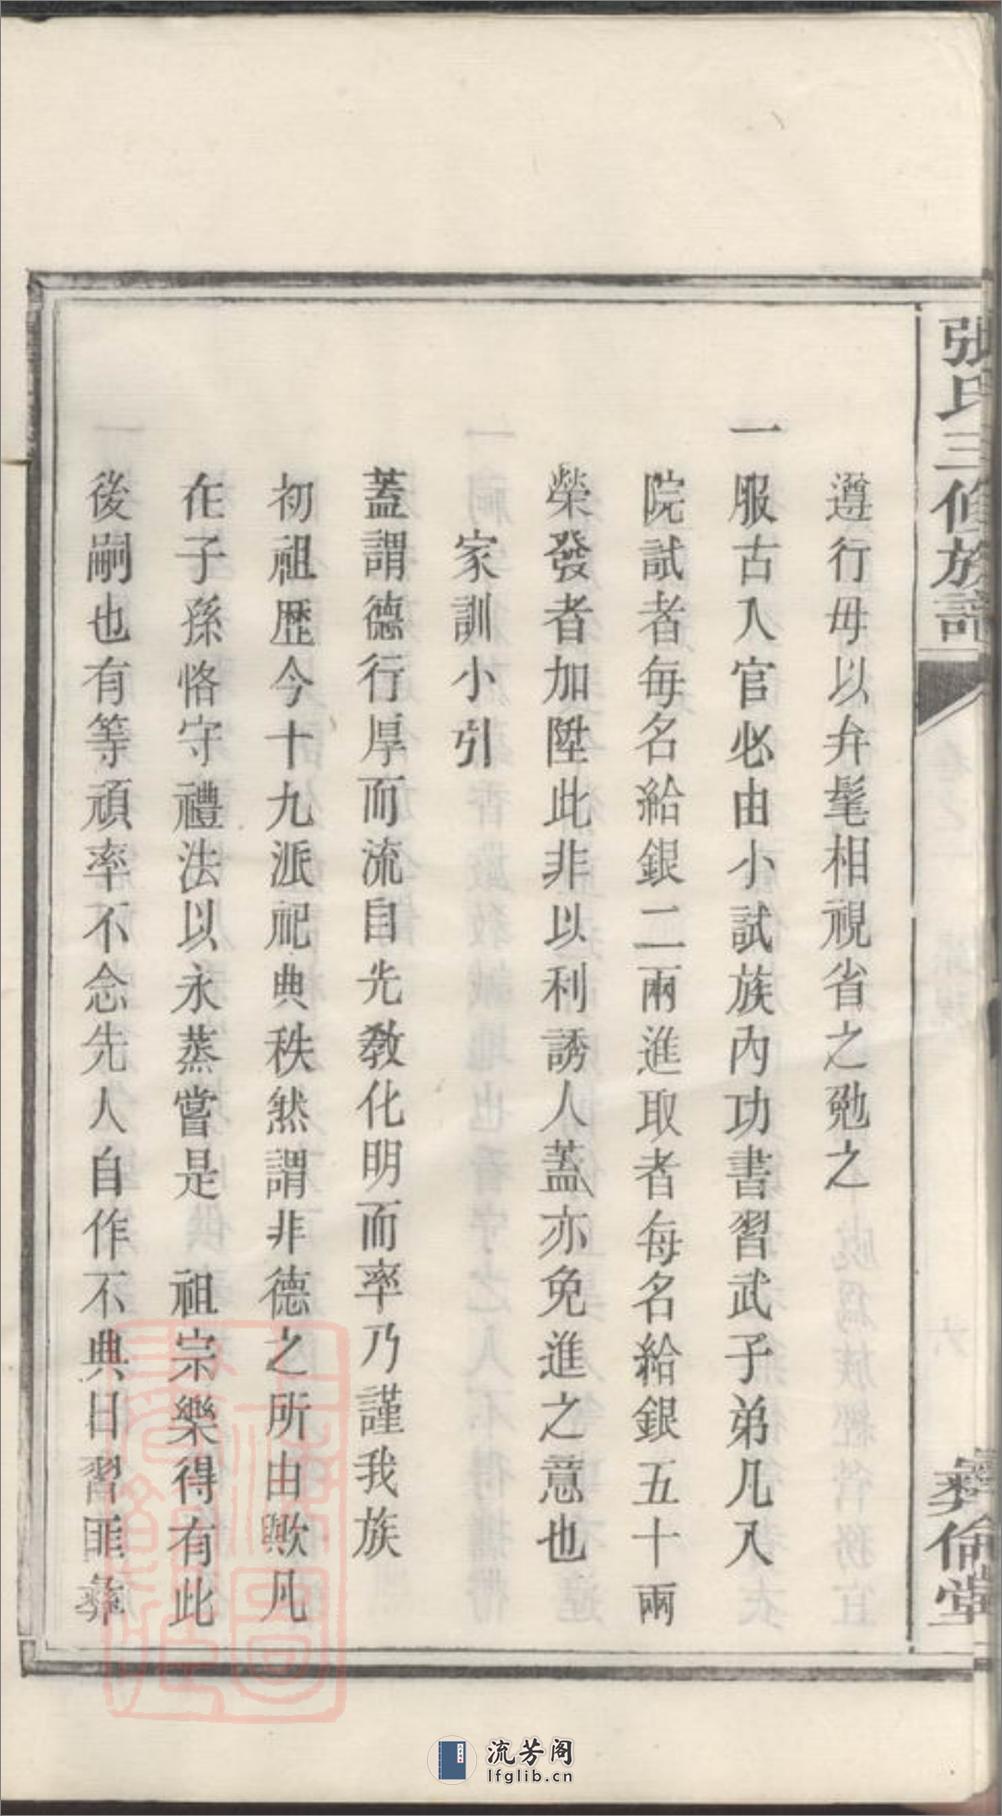 張氏三修族譜
彝倫堂
遵行毋以弁髦相視省之勉之
一服古入官必由小試族內功書習武子弟凡入
院試者每名給銀二兩進取者每名給銀五十兩
榮發者加陞此非以利誘人蓋亦免進之意也
家訓小引
蓋謂德行厚而流自先教化明而率乃謹我族
初祖歷今十九派祀典秩然謂非德之所由歟凡
在子孫恪守禮法以永蒸嘗是 祖宗樂得有此
後嗣也有等頑率不念先人自作不典日習匪彝
流芳阁
lfglib.cn